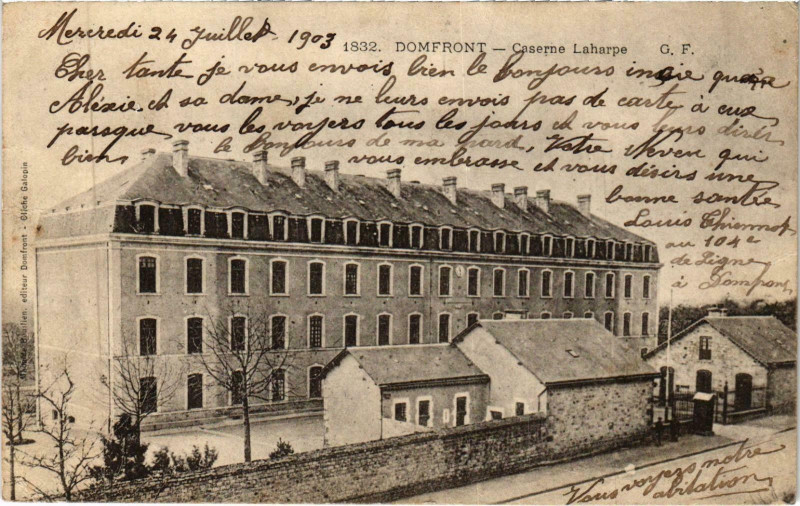 Mercredi 24 Juillet 1903
1832. DOMFRONT — Caserne Laharpe G. F.
Cher tante je vous envois bien le bonjours
Aléxie et sa dame, je ne leurs envois pas de carte à eux
parsque vous les voyers tous les jours et vous leurs dirér
bien le bonjours de ma pard, Votre neveu qui
vous embrasse et vous désirs une
bonne santée
Louis Thiennot
au 104e
de Ligne
à Domfront
éditeur Domfront - Cliché Galopin
Vous voyers notre
abitation